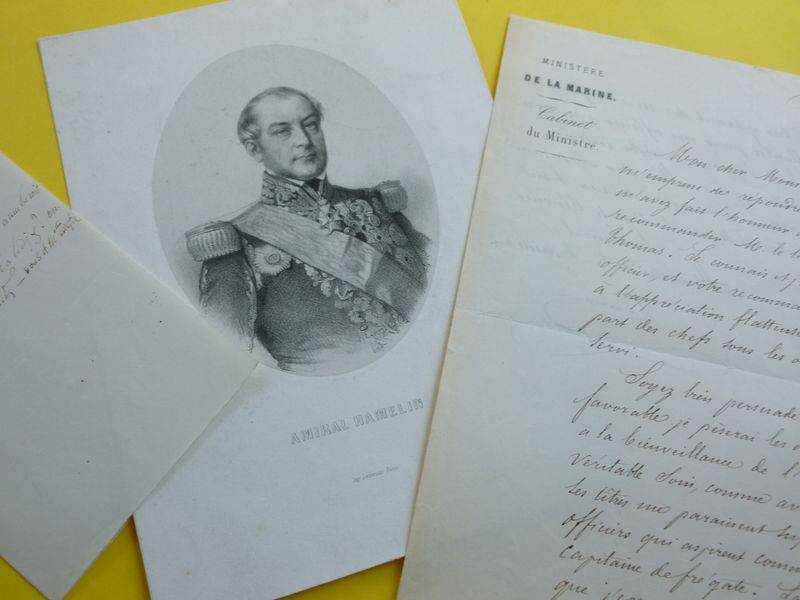 AMIRAL HAMELIN
MINISTÈRE
DE LA MARINE.
Cabinet
du Ministre.
Mon cher
m'empress de répondre
m'avez fait l'honneur
recommander M. le
Thomas. Je connais et
officier, et votre recomma
à l'appréciation flatteuse
part des chefs sous les
servi.
Soyez bien persuadé
favorable je pèserai les
à la bienveillance de l'
véritable soin, comme av
les titres me paraissent
officiers qui aspirent comm
Capitaine de frégate.
que